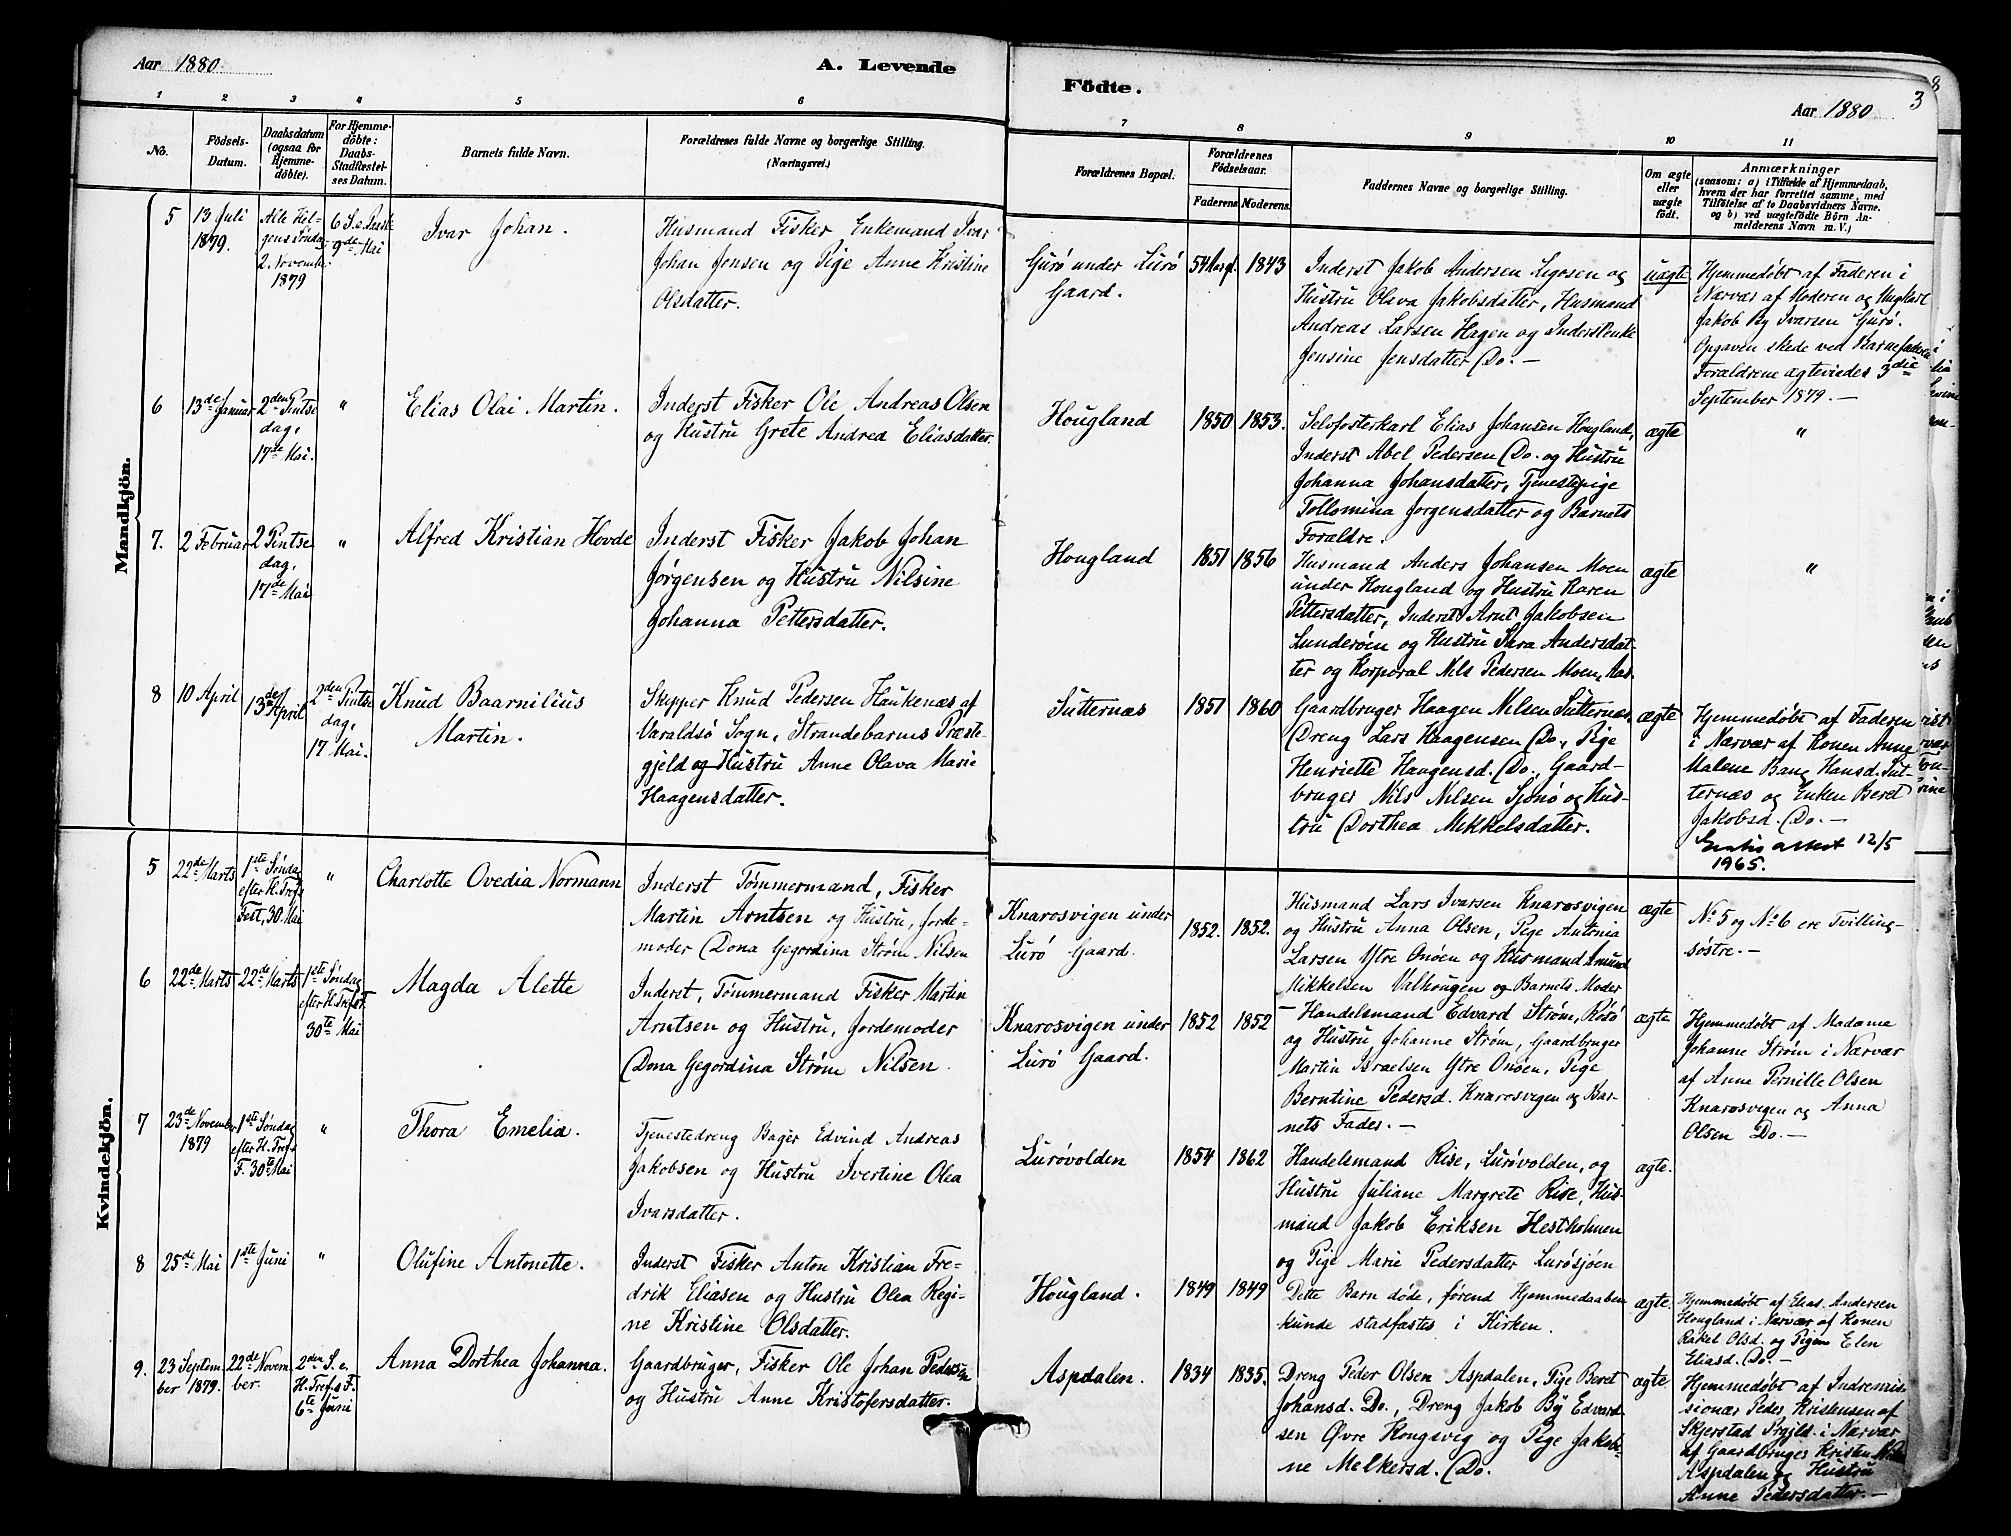 Aar 1880.
A. Levende
1 2 3 4 5 6
No.
Födsels-
Datum.
Daabsdatum
(ogsaa for
Hjemme-
döbte).
For Hjemme-
döbte:
Daabs-
Stadfæstel-
ses Datum.
Barnets fulde Navn.
Forældrenes fulde Navne og borgerlige Stilling.
(Næringsvei.)
Födte.
Aar 1880
3
7 8 9 10 11
Forældrenes Bopæl.
Forældrenes
Födselsaar.
Faderens Moderens.
Faddernes Navne og borgerlige Stilling.
Om ægte
eller
uægte
födt.
Anmærkninger
(saasom: a) i Tilfælde af Hjemmedaab,
hvem der har forrettet samme, med
Tilföielse af to Daabsvidners Navne.
og b) ved uægtefödte Börn An-
melderens Navn m. V.)
Mandkjön.
5
13 Juli
1879.
Alle Hel-
gens Søndag
2 Novemb.
1879
6 S. e. Paaske
9de Mai
Ivar Johan.
Husmand Fisker Enkemand Ivar
Johan Jonsen og Pige Anne Kristine
Olsdatter.
Gurø under Lurø
Gaard.
54 Aar gl.
1843
Inderst Jakob Andersen Ligosen og
Hustru Olava Jakobsdatter, Husmand
Andreas Larsen Hagen og Inderstenke
Jensine Jensdatter Do. —
uægte
Hjemmedøbt af Faderen i
Nærvær af Moderen og Ungkarl
Jakob By Ivarsen Gurø.
Opgaven skede ved Barnefaderen
Forældrene ægteviedes 3die
September 1879. —
6
13de Januar
2den Pintse
dag,
17de Mai.
"
Elias Olai Martin.
Inderst Fisker Ole Andreas Olsen
og Hustru Grete Andrea Eliasdatter.
Hougland
1850 1853.
Selvfosterkarl Elias Johansen Hougland,
Inderst Abel Pedersen Do. og Hustru
Johanna Johansdatter, Tjenestepige
Tollomina Jørgensdatter og Barnets
Forældre.
ægte
"
7.
2 Februar
2 Pintse
dag,
17de Mai
"
Alfred Kristian Hovde
Inderst Fisker Jakob Johan
Jørgensen og Hustru Nilsine
Johanna Pettersdatter.
Hougland
1851 1856
Husmand Anders Johansen Moen
under Hougland og Hustru Karen
Pettersdatter, Inderst Arnt Jakobsen
Lunderøen og Hustru Sara Andersdat-
ter og Korporal Nils Pedersen Moen,
ægte
"
8
10 April
13de April
2den Pintse
dag,
17 Mai.
Knud Baarnilius
Martin.
Skipper Knud Pedersen Haukenæs af
Varaldsø Sogn, Strandebarms Præste-
gjeld og Hustru Anne Olava Marie
Haagensdatter.
Sutternæs
1851 1860
Gaardbruger Haagen Nilsen Sutternæs,
Dreng Lars Haagensen Do, Pige
Henriette Haagensd. Do., Gaard-
bruger Nils Nilsen Sjonø og Hus-
tru Dorthea Mikkelsdatter.
ægte
Hjemmedøbt af Faderen
i Nærvær af Konen Anne
Malene Bang Hansd. Sut-
ternæs og Enken Beret
Jakobsd. Do. —
Gratis attest 12/5
1965.
Kvindekjön.
5
22de Marts
1ste Søndag
efter H. Tref.s
Fest, 30 Mai
"
Charlotte Ovedia Normann
Inderst Tømmermand, Fisker
Martin Arntsen og Hustru, Jorde-
moder Dona Gegordina Strøm Nilsen
Knarosvigen under
Lurø Gaard.
1852. 1852.
Husmand Lars Ivarsen Knarosvigen
og Hustru Anna Olsen, Pige Antonia
Larsen Ytre Onøen og Husmand Amund
Mikkelsen Valhougen og Barnets Moder
ægte
No 5 og No 6 ere Tvilling-
søstre. —
6
22de Marts
22de Marts
1ste Søndag
efter H. Tref.s F.
30te Mai
Magda Alette
Inderst, Tømmermand Fisker Martin
Arntsen og Hustru, Jordemoder
Dona Gegordina Strøm Nilsen.
Knarosvigen under
Lurø Gaard.
1852 1852
— Handelsmand Edvard Strøm, Rosø
og Hustru Johanne Strøm, Gaardbruger
Martin Israelsen Ytre Onøen, Pige
Berntine Pedersd. Knarosvigen og Bar-
nets Fader. —
ægte
Hjemmedøbt af Madame
Johanne Strøm i Nærvær
af Anne Pernille Olsen
Knarosvigen og Anna
Olsen Do. —
7
23de November
1879
1ste Søndag
efter H. Tref.s
F. 30te Mai
"
Thora Emelia.
Tjenestedreng Bager Edvind Andreas
Jakobsen og Hustru Ivertine Olea
Ivarsdatter.
Lurøvolden
1854 1862
Handelsmand Rise, Lurøvolden, og
Hustru Juliane Margrete Rise, Hus-
mand Jakob Eriksen Hestholmen
og Pige Marie Pedersdatter Lurøsjøen
ægte.
8
25de Mai
1ste Juni
"
Olufine Antonette.
Inderst Fisker Anton Kristian Fre-
drik Eliasen og Hustru Olea Regi-
ne Kristine Olsdatter.
Hougland.
1849 1849
Dette Barn døde, førend Hjemmedaaben
kunde stadfæstes i Kirken.
ægte.
Hjemmedøbt af Elias Andersen
Hougland i Nærvær af Konen
Rakel Olsd. og Pigen Elen
Eliasd. Do. —
9.
23 Septem-
ber 1879.
22de Novem-
ber.
2den S. e.
H. Tref.s F.
6te Juni
Anna Dorthea Johanna.
Gaardbruger, Fisker Ole Johan Pedersen
og Hustru Anne Kristofersdatter.
Aspdalen.
1834 1835.
Dreng Peder Olsen Aspdalen, Pige Beret
Johansd. Do., Dreng Jakob By Edvard-
sen Øvre Kongsvig og Pige Jakobi-
ne Melkersd. Do.
ægte
Hjemmedøbt af Indremis-
sionær Peder Kristensen af
Skjerstad Prgjld. i Nærvær
af Gaardbruger Kristen
Aspdalen og Hustru
Anne Pedersdatter. —